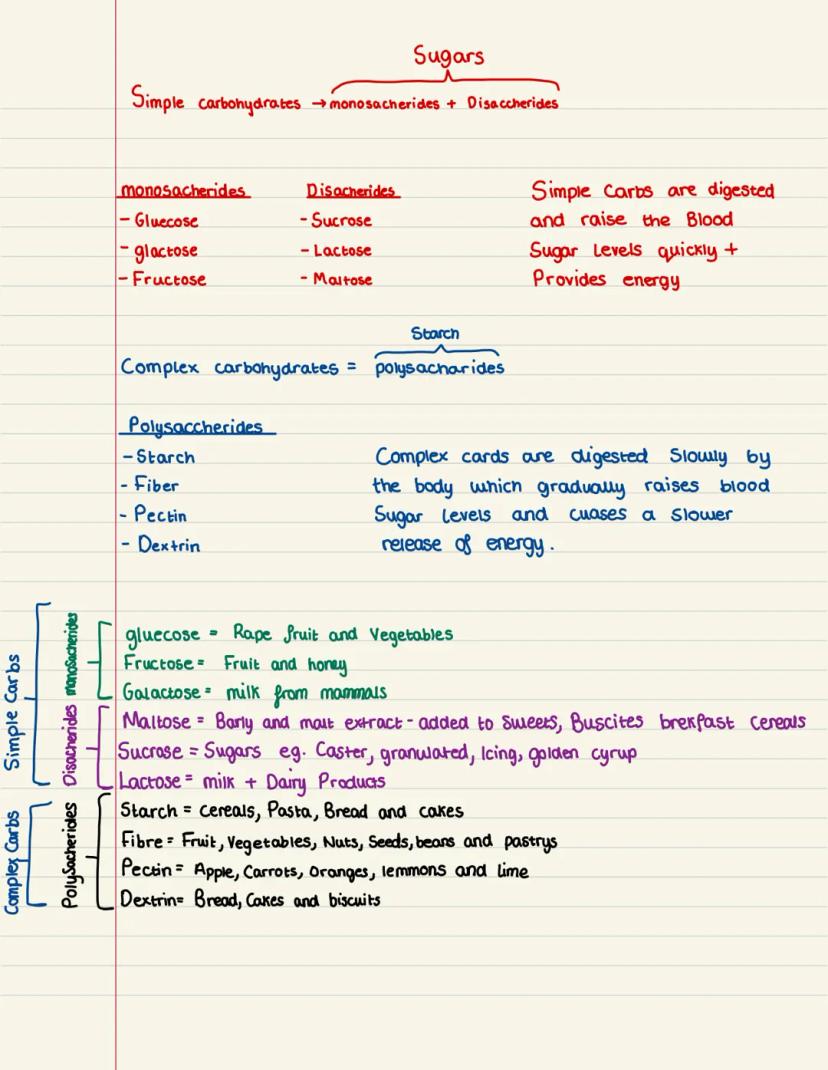 Sugars
Simple carbohydrates → monosacherides + Disaccherides
monosacherides Disacherides Simple Carbs are digested
- Gluecose - Sucrose and raise the Blood
- glactose - Lactose Sugar Levels quickly +
- Fructose - Maltose Provides energy
Starch
Complex carbohydrates = polysacharides
Polysaccherides
- Starch Complex cards are digested Slowly by
- Fiber the body which gradually raises blood
- Pectin Sugar levels and cuases a slower
- Dextrin release of energy.
Simple Carbs
monosacherides
gluecose = Rape fruit and Vegetables
Fructose = Fruit and honey
Galactose = milk from mammals
Disacherides
Maltose = Barly and malt extract - added to sweets, Buscites brekfast cereals
Sucrose = Sugars eg. Caster, granulated, Icing, golden cyrup
Lactose = milk + Dairy Products
Complex Carbs
PolySacherides
Starch = cereals, Pasta, Bread and cakes
Fibre = Fruit, Vegetables, Nuts, Seeds, beans and pastrys
Pectin = Apple, Carrots, Oranges, lemmons and lime
Dextrin = Bread, Cakes and biscuits